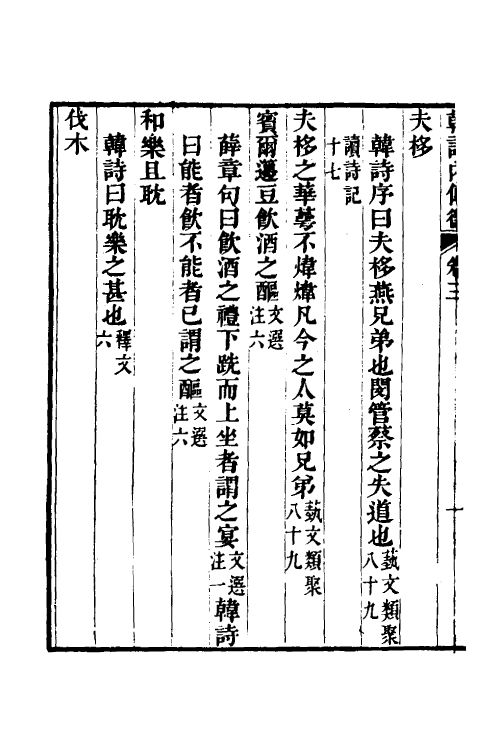 夫栘
韓詩序曰夫栘燕兄弟也閔管蔡之失道也藝文類聚八十九
讀詩記十七
夫栘之華萼不煒煒凡今之人莫如兄弟藝文類聚八十九
賓爾籩豆飲酒之醧文選注六
薛章句曰飲酒之禮下跣而上坐者謂之宴文選注一韓詩
曰能者飲不能者已謂之醧文選注六
和樂且耽
韓詩曰耽樂之甚也釋文六
伐木